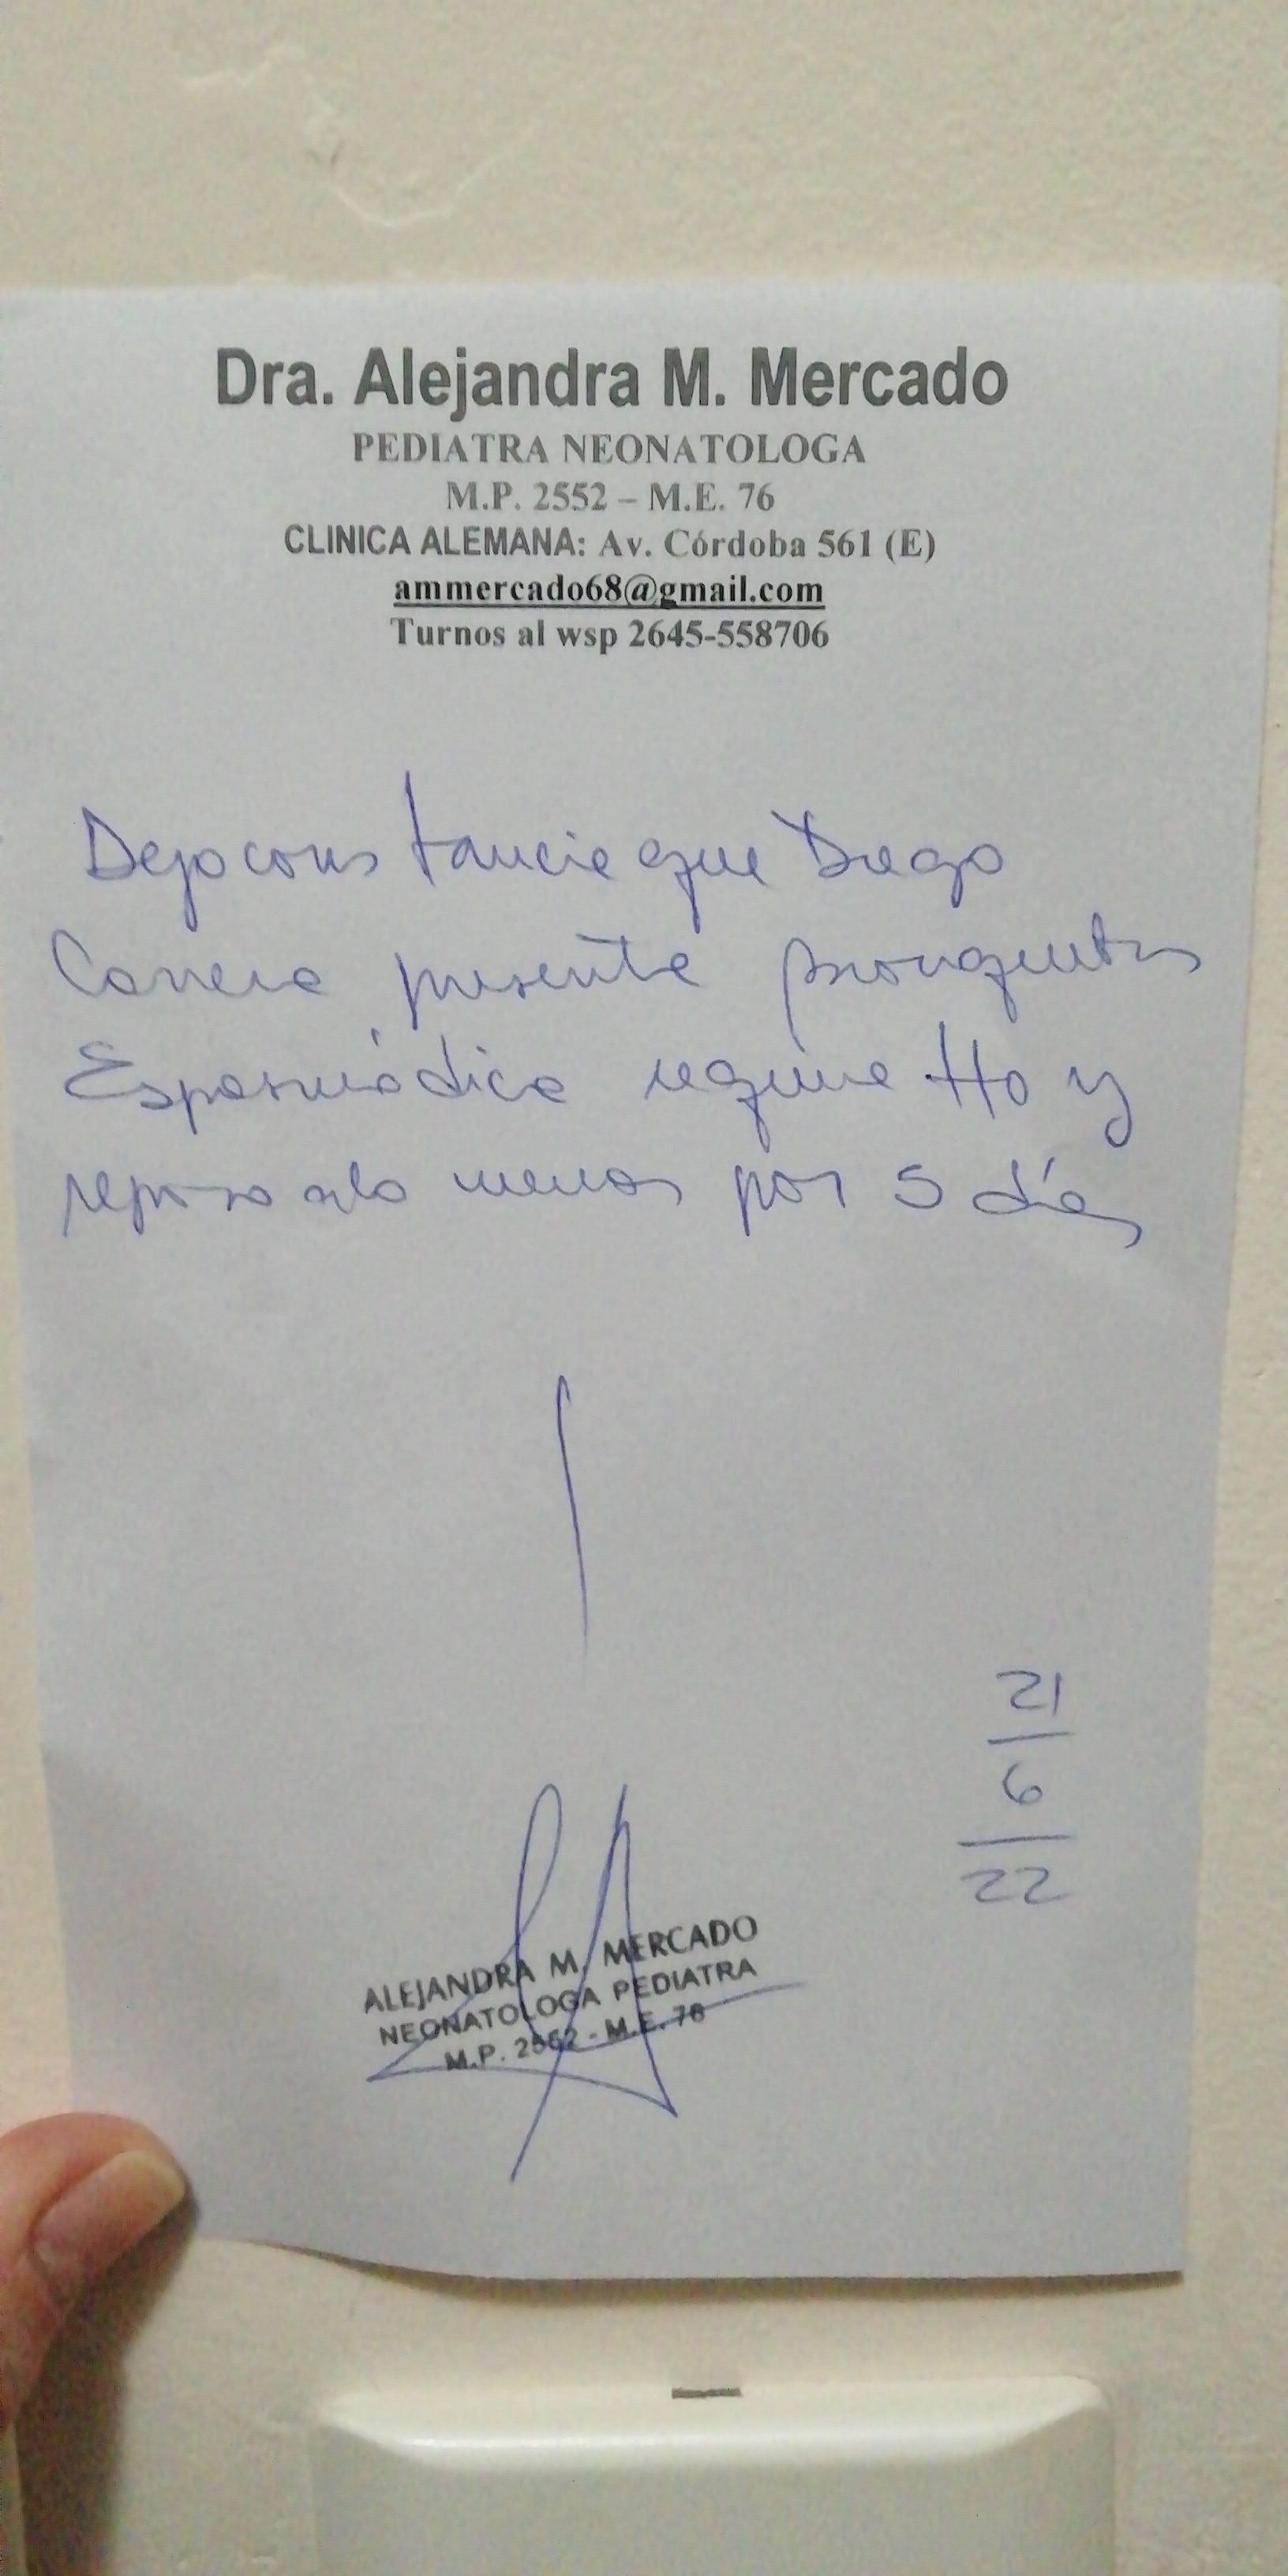 Dra. Alejandra M. Mercado
PEDIATRA NEONATOLOGA
M.P. 2552 – M.E. 76
CLINICA ALEMANA: Av. Córdoba 561 (E)
ammercado68@gmail.com
Turnos al wsp 2645-558706
Dejo constancia que Diego
presenta bronquitis
Espasmódica requiere tto y
reposo a lo menos por 5 días
21
6
22
ALEJANDRA M. MERCADO
NEONATOLOGA PEDIATRA
M.P. 2552 - M.E. 76